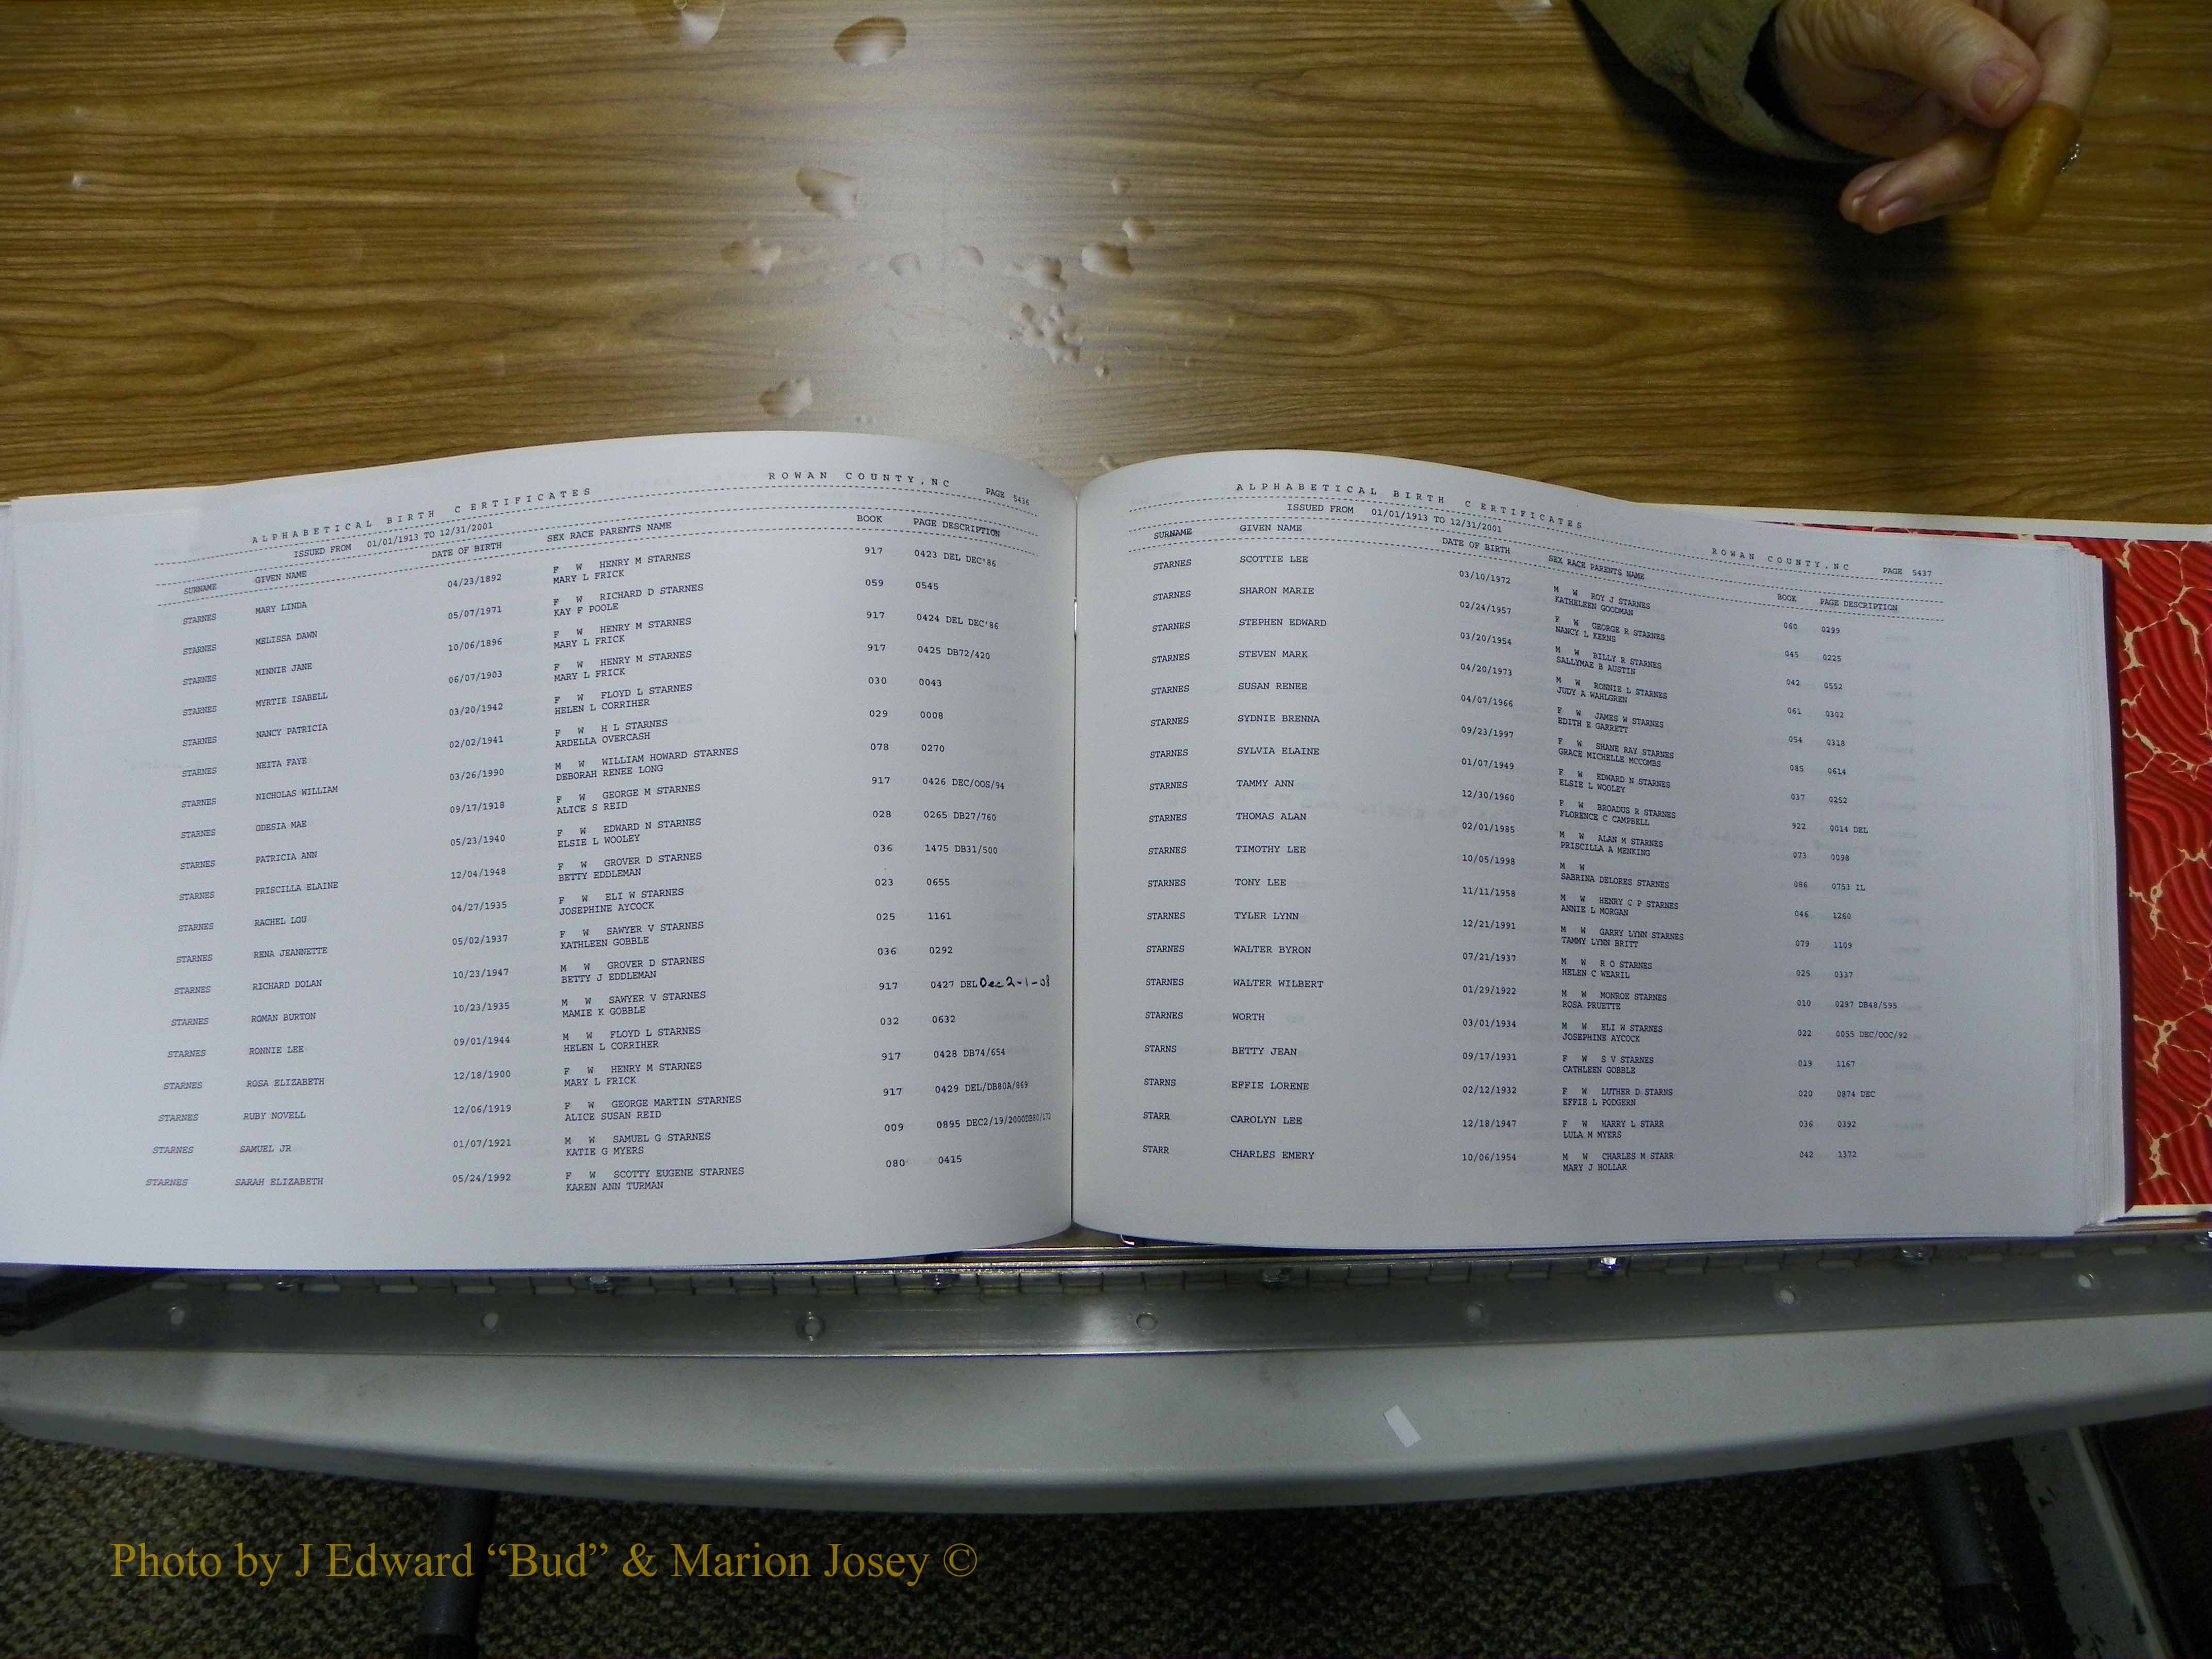 ALPHABETICAL BIRTH CERTIFICATES ROWAN COUNTY, NC PAGE 5436
ISSUED FROM 01/01/1913 TO 12/31/2001
SURNAME GIVEN NAME DATE OF BIRTH SEX RACE PARENTS NAME BOOK PAGE DESCRIPTION
STARNES MARY LINDA 04/23/1892 F W HENRY M STARNES 917 0423 DEL DEC'86
MARY L FRICK
STARNES MELISSA DAWN 05/07/1971 F W RICHARD D STARNES 059 0545
KAY F POOLE
STARNES MINNIE JANE 10/06/1896 F W HENRY M STARNES 917 0424 DEL DEC'86
MARY L FRICK
STARNES MYRTIE ISABELL 06/07/1903 F W HENRY M STARNES 917 0425 DB72/420
MARY L FRICK
STARNES NANCY PATRICIA 03/20/1942 F W FLOYD L STARNES 030 0043
HELEN L CORRIHER
STARNES NEITA FAYE 02/02/1941 F W H L STARNES 029 0008
ARDELLA OVERCASH
STARNES NICHOLAS WILLIAM 03/26/1990 M W WILLIAM HOWARD STARNES 078 0270
DEBORAH RENEE LONG
STARNES ODESIA MAE 09/17/1918 F W GEORGE M STARNES 917 0426 DEC/OOS/94
ALICE S REID
STARNES PATRICIA ANN 05/23/1940 F W EDWARD N STARNES 028 0265 DB27/760
ELSIE L WOOLEY
STARNES PRISCILLA ELAINE 12/04/1948 F W GROVER D STARNES 036 1475 DB31/500
BETTY EDDLEMAN
STARNES RACHEL LOU 04/27/1935 F W ELI W STARNES 023 0655
JOSEPHINE AYCOCK
STARNES RENA JEANNETTE 05/02/1937 F W SAWYER V STARNES 025 1161
KATHLEEN GOBBLE
STARNES RICHARD DOLAN 10/23/1947 M W GROVER D STARNES 036 0292
BETTY J EDDLEMAN
STARNES ROMAN BURTON 10/23/1935 M W SAWYER V STARNES 917 0427 DEL Dec 2-1-08
MAMIE K GOBBLE
STARNES RONNIE LEE 09/01/1944 M W FLOYD L STARNES 032 0632
HELEN L CORRIHER
STARNES ROSA ELIZABETH 12/18/1900 F W HENRY M STARNES 917 0428 DB74/654
MARY L FRICK
STARNES RUBY NOVELL 12/06/1919 F W GEORGE MARTIN STARNES 917 0429 DEL/DB80A/869
ALICE SUSAN REID
STARNES SAMUEL JR 01/07/1921 M W SAMUEL G STARNES 009 0895 DEC2/19/2000DB80/172
KATIE G MYERS
STARNES SARAH ELIZABETH 05/24/1992 F W SCOTTY EUGENE STARNES 080 0415
KAREN ANN TURMAN
ALPHABETICAL BIRTH CERTIFICATES ROWAN COUNTY, NC PAGE 5437
ISSUED FROM 01/01/1913 TO 12/31/2001
SURNAME GIVEN NAME DATE OF BIRTH SEX RACE PARENTS NAME BOOK PAGE DESCRIPTION
STARNES SCOTTIE LEE 03/10/1972 M W ROY J STARNES 060 0299
KATHELEEN GOODMAN
STARNES SHARON MARIE 02/24/1957 F W GEORGE R STARNES 045 0225
NANCY L KERNS
STARNES STEPHEN EDWARD 03/20/1954 M W BILLY R STARNES 042 0552
SALLYMAE B AUSTIN
STARNES STEVEN MARK 04/20/1973 M W RONNIE L STARNES 061 0302
JUDY A WAHLGREN
STARNES SUSAN RENEE 04/07/1966 F W JAMES W STARNES 054 0318
EDITH E GARRETT
STARNES SYDNIE BRENNA 09/23/1997 F W SHANE RAY STARNES 085 0614
GRACE MICHELLE MCCOMBS
STARNES SYLVIA ELAINE 01/07/1949 F W EDWARD N STARNES 037 0252
ELSIE L WOOLEY
STARNES TAMMY ANN 12/30/1960 F W BROADUS R STARNES 922 0014 DEL
FLORENCE C CAMPBELL
STARNES THOMAS ALAN 02/01/1985 M W ALAN M STARNES 073 0098
PRISCILLA A MENKING
STARNES TIMOTHY LEE 10/05/1998 M W 086 0753 IL
SABRINA DELORES STARNES
STARNES TONY LEE 11/11/1958 M W HENRY C P STARNES 046 1260
ANNIE L MORGAN
STARNES TYLER LYNN 12/21/1991 M W GARRY LYNN STARNES 079 1109
TAMMY LYNN BRITT
STARNES WALTER BYRON 07/21/1937 M W R O STARNES 025 0337
HELEN C WEARIL
STARNES WALTER WILBERT 01/29/1922 M W MONROE STARNES 010 0297 DB48/595
ROSA PRUETTE
STARNES WORTH 03/01/1934 M W ELI W STARNES 022 0055 DEC/OOC/92
JOSEPHINE AYCOCK
STARNS BETTY JEAN 09/17/1931 F W S V STARNES 019 1167
CATHLEEN GOBBLE
STARNS EFFIE LORENE 02/12/1932 F W LUTHER D STARNS 020 0874 DEC
EFFIE L PODGERN
STARR CAROLYN LEE 12/18/1947 F W HARRY L STARR 036 0392
LULA M MYERS
STARR CHARLES EMERY 10/06/1954 M W CHARLES M STARR 042 1372
MARY J HOLLAR
Photo by J Edward “Bud” & Marion Josey ©